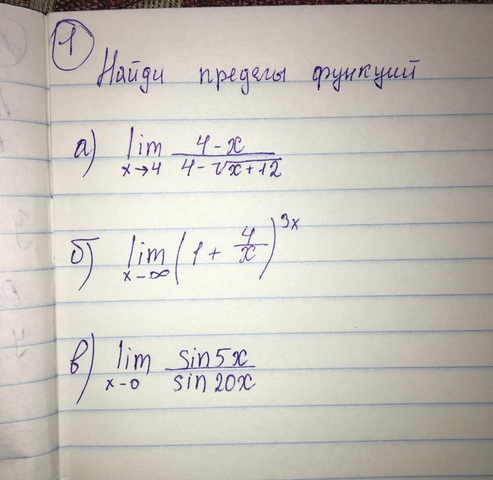 1
Найди пределы функций
а) lim x→4 4-x / 4-√x+12
б) lim x-∞ (1 + 4/x)^3x
в) lim x-0 sin5x / sin20x